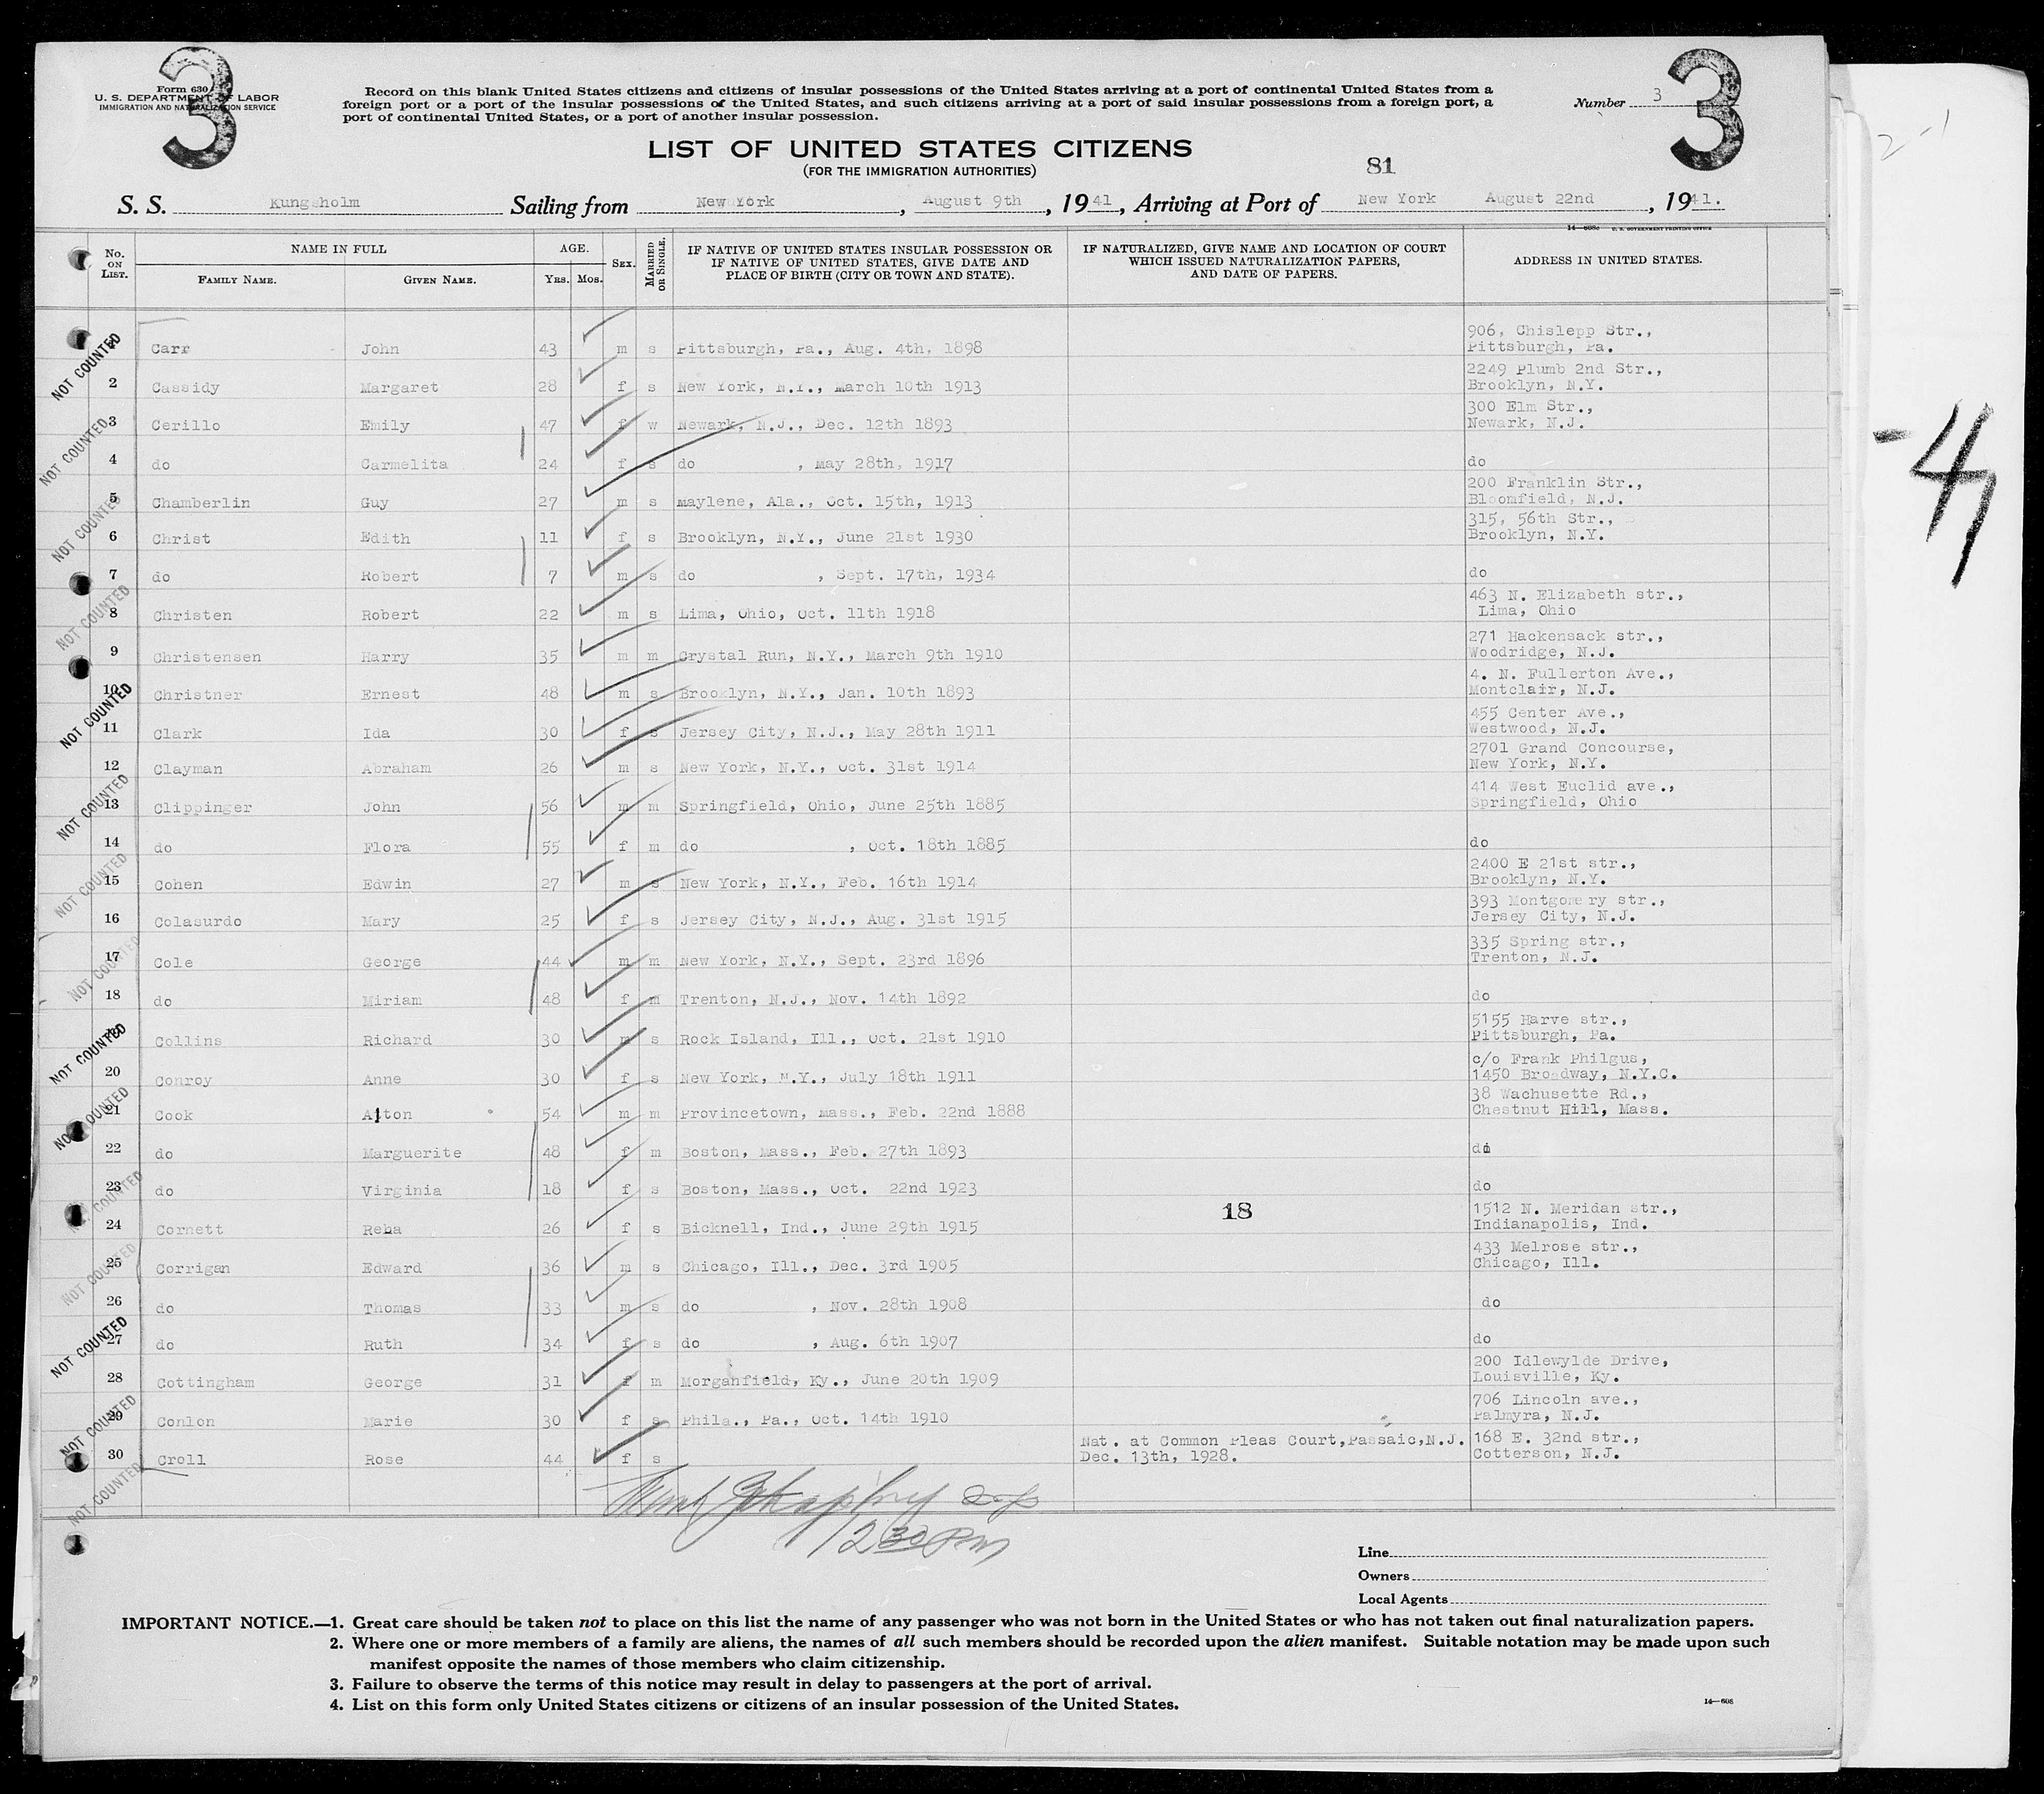 3
3
Form 630
U. S. DEPARTMENT OF LABOR
IMMIGRATION AND NATURALIZATION SERVICE
Record on this blank United States citizens and citizens of insular possessions of the United States arriving at a port of continental United States from a
foreign port or a port of the insular possessions of the United States, and such citizens arriving at a port of said insular possessions from a foreign port, a
port of continental United States, or a port of another insular possession.
Number 3
LIST OF UNITED STATES CITIZENS
(FOR THE IMMIGRATION AUTHORITIES)
81
S. S. Kungsholm Sailing from New York, August 9th, 1941, Arriving at Port of New York August 22nd, 1941.
No. ON LIST.
NAME IN FULL
FAMILY NAME. GIVEN NAME.
AGE.
YRS. MOS.
SEX.
MARRIED OR SINGLE.
IF NATIVE OF UNITED STATES INSULAR POSSESSION OR
IF NATIVE OF UNITED STATES, GIVE DATE AND
PLACE OF BIRTH (CITY OR TOWN AND STATE).
IF NATURALIZED, GIVE NAME AND LOCATION OF COURT
WHICH ISSUED NATURALIZATION PAPERS,
AND DATE OF PAPERS.
ADDRESS IN UNITED STATES.
Carr John 43 m s Pittsburgh, Pa., Aug. 4th, 1898 906, Chislepp Str., Pittsburgh, Pa.
2 Cassidy Margaret 28 f s New York, N.Y., March 10th 1913 2249 Plumb 2nd Str., Brooklyn, N.Y.
3 Cerillo Emily 47 f w Newark, N.J., Dec. 12th 1893 300 Elm Str., Newark, N.J.
4 do Carmelita 24 f s do , May 28th, 1917 do
5 Chamberlin Guy 27 m s Maylene, Ala., Oct. 15th, 1913 200 Franklin Str., Bloomfield, N.J.
6 Christ Edith 11 f s Brooklyn, N.Y., June 21st 1930 315, 56th Str., Brooklyn, N.Y.
7 do Robert 7 m s do , Sept. 17th, 1934 do
8 Christen Robert 22 m s Lima, Ohio, Oct. 11th 1918 463 N. Elizabeth str., Lima, Ohio
9 Christensen Harry 35 m m Crystal Run, N.Y., March 9th 1910 271 Hackensack str., Woodridge, N.J.
10 Christner Ernest 48 m s Brooklyn, N.Y., Jan. 10th 1893 4. N. Fullerton Ave., Montclair, N.J.
11 Clark Ida 30 f s Jersey City, N.J., May 28th 1911 455 Center Ave., Westwood, N.J.
12 Clayman Abraham 26 m s New York, N.Y., Oct. 31st 1914 2701 Grand Concourse, New York, N.Y.
13 Clippinger John 56 m m Springfield, Ohio, June 25th 1885 414 West Euclid ave., Springfield, Ohio
14 do Flora 55 f m do , Oct. 18th 1885 do
15 Cohen Edwin 27 m s New York, N.Y., Feb. 16th 1914 2400 E 21st str., Brooklyn, N.Y.
16 Colasurdo Mary 25 f s Jersey City, N.J., Aug. 31st 1915 393 Montgomery str., Jersey City, N.J.
17 Cole George 44 m m New York, N.Y., Sept. 23rd 1896 335 Spring str., Trenton, N.J.
18 do Miriam 48 f m Trenton, N.J., Nov. 14th 1892 do
19 Collins Richard 30 m s Rock Island, Ill., Oct. 21st 1910 5155 Harve str., Pittsburgh, Pa.
20 Conroy Anne 30 f s New York, N.Y., July 18th 1911 c/o Frank Philgus, 1450 Broadway, N.Y.C.
21 Cook Alton 54 m m Provincetown, Mass., Feb. 22nd 1888 38 Wachusette Rd., Chestnut Hill, Mass.
22 do Marguerite 48 f m Boston, Mass., Feb. 27th 1893 do
23 do Virginia 18 f s Boston, Mass., Oct. 22nd 1923 do
24 Cornett Reba 26 f s Bicknell, Ind., June 29th 1915 18 1512 N. Meridan str., Indianapolis, Ind.
25 Corrigan Edward 36 m s Chicago, Ill., Dec. 3rd 1905 433 Melrose str., Chicago, Ill.
26 do Thomas 33 m s do , Nov. 28th 1908 do
27 do Ruth 34 f s do , Aug. 6th 1907 do
28 Cottingham George 31 f m Morganfield, Ky., June 20th 1909 200 Idlewylde Drive, Louisville, Ky.
29 Conlon Marie 30 f s Phila., Pa., Oct. 14th 1910 706 Lincoln ave., Palmyra, N.J.
30 Croll Rose 44 f s Nat. at Common Pleas Court, Passaic, N.J. Dec. 13th, 1928. 168 E. 32nd str., Cotterson, N.J.
NOT COUNTED
12 30 PM
Line
Owners
Local Agents
IMPORTANT NOTICE.—1. Great care should be taken not to place on this list the name of any passenger who was not born in the United States or who has not taken out final naturalization papers.
2. Where one or more members of a family are aliens, the names of all such members should be recorded upon the alien manifest. Suitable notation may be made upon such
manifest opposite the names of those members who claim citizenship.
3. Failure to observe the terms of this notice may result in delay to passengers at the port of arrival.
4. List on this form only United States citizens or citizens of an insular possession of the United States.
14—608
2-1